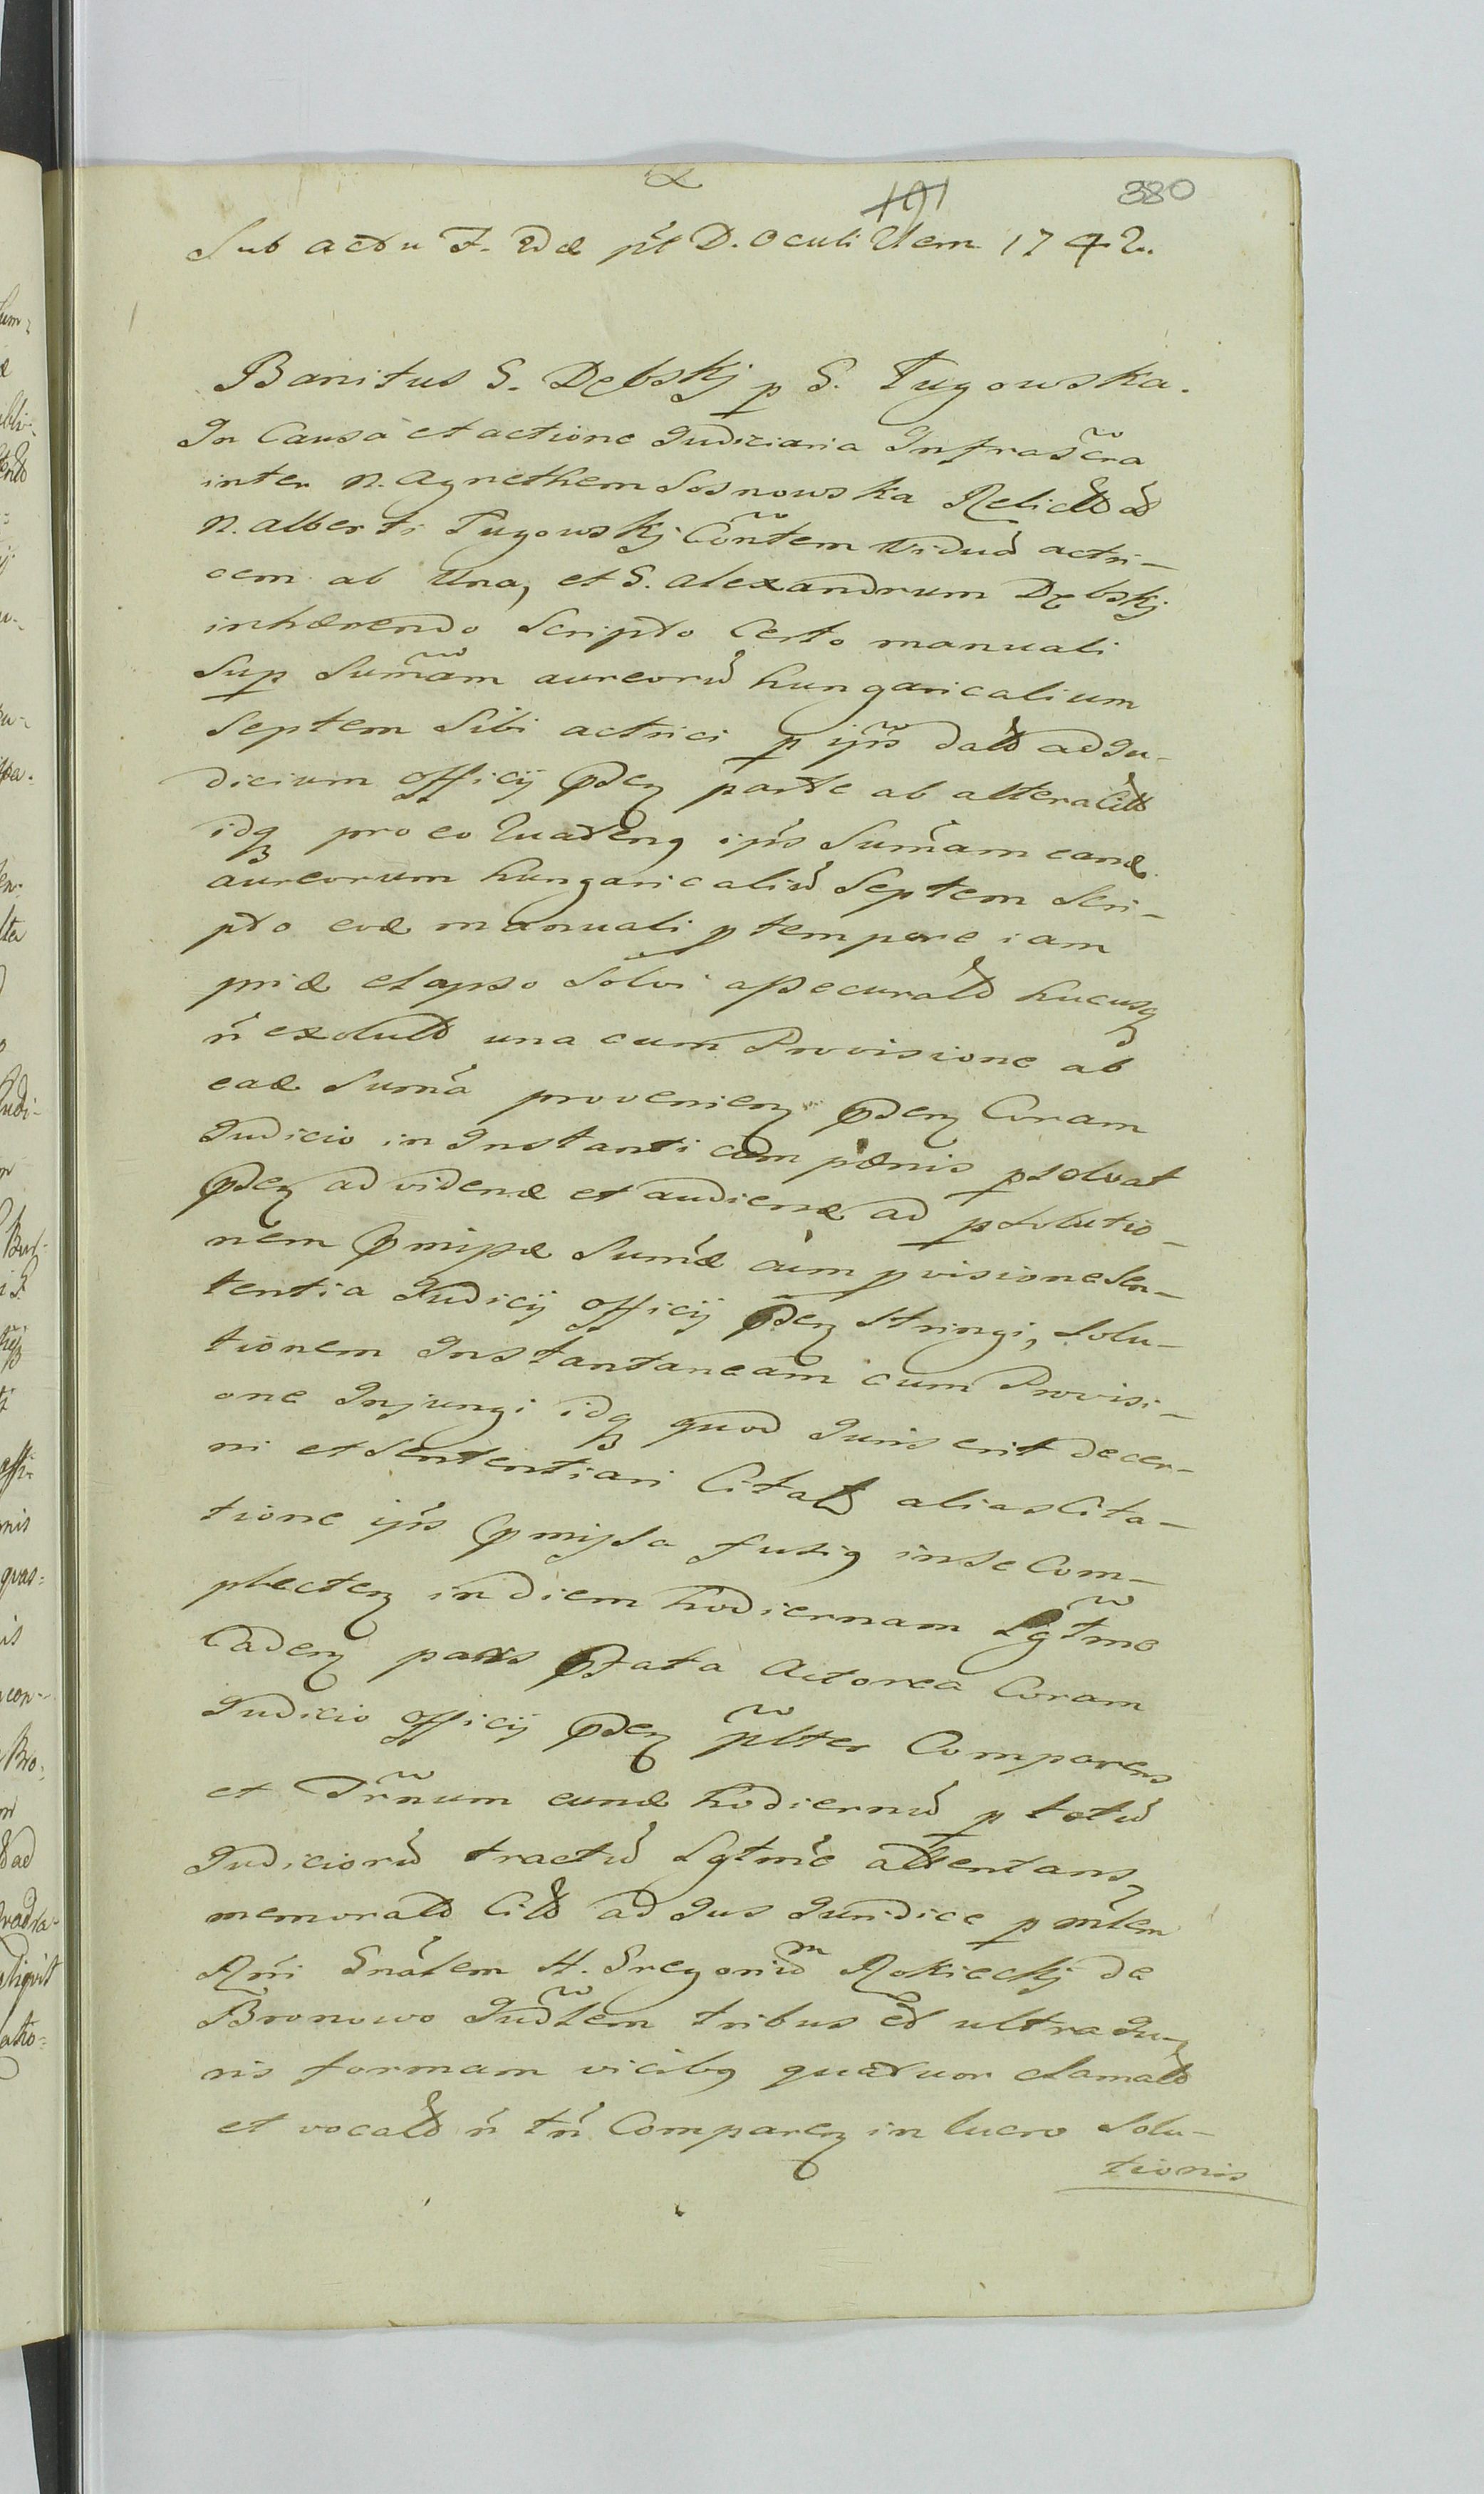 191 380
Sub actu F. 2dæ pt D. Oculi Uem 1742.
Banitus G. Dębskj p G. Tugowska.
In Causa et actione Judiciaria Infrascra
inter N. Agnethem Sosnowska Relictd ad
N. Alberti Tugowskj Contem Viduã actri-
cem ab Una, et G. Alexandrum Dębskj
inhærendo Scripto Certo manuali
Sup Sumam aureorũ hungaricalium
Septem Sibi actrici p ipm datd ad Ju-
dicium officij pden parte ab altera Citd
idq pro eo Quateng ips Sumam eand
aureorum hungaricaliũ Septem Scri-
pto eod manuali p tempore iam
prid elapso Solvi assecuratd hucusq
ñ exolutd una cum Provisione ab
ead Suma provenien pden Coram
Judicio in Instanti cum pœnis psolvat
pden ad vidend et audiend ad psolutio-
nem pmissæ Sumæ cum pvisione Sen-
tentia Judicij officij pden stringi, Solu-
tionem Instantaneam cum Provisi-
one Injungi idq quod Juris erit decer-
ni et Sententiari Citatd alias Cita-
tione ips pmissa fusig in se Com-
plecten in diem hodiernam Lgtme
Caden pars pfata Actorea Coram
Judicio officij pden plter Comparens
et Trnum eund hodiernũ p totũ
Judiciorũ tractũ Lgtme attentans,
memoratd Citd ad Jus Juridice p mlem
Rni Gnalem H. Gregoriũ Rokieckj de
Bronowo Judlem tribus et ultra Ju-
ris formam vicibg quatuor clamatd
et vocatd ñ tñ Comparen in lucro Solu-
tionis